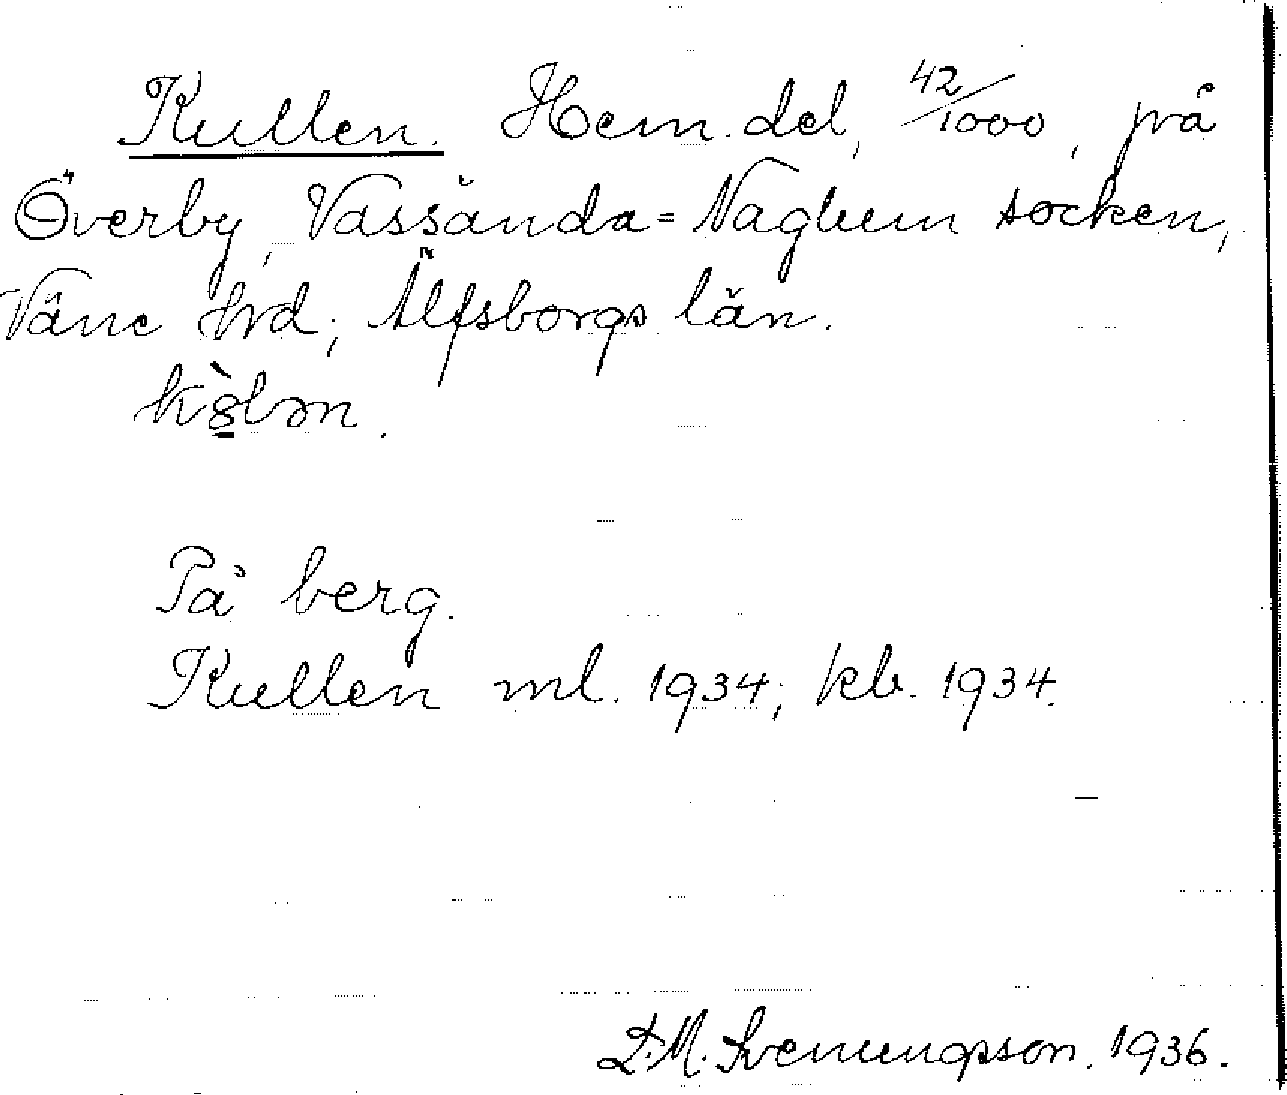 Kullen. Hem. del, 42/1000, på
Överby, Vassända=Naglum socken,
Väne hrd, Älfsborgs län.
På berg.
Kullen ml. 1934; kb. 1934.
D.M. Svenungsson. 1936.